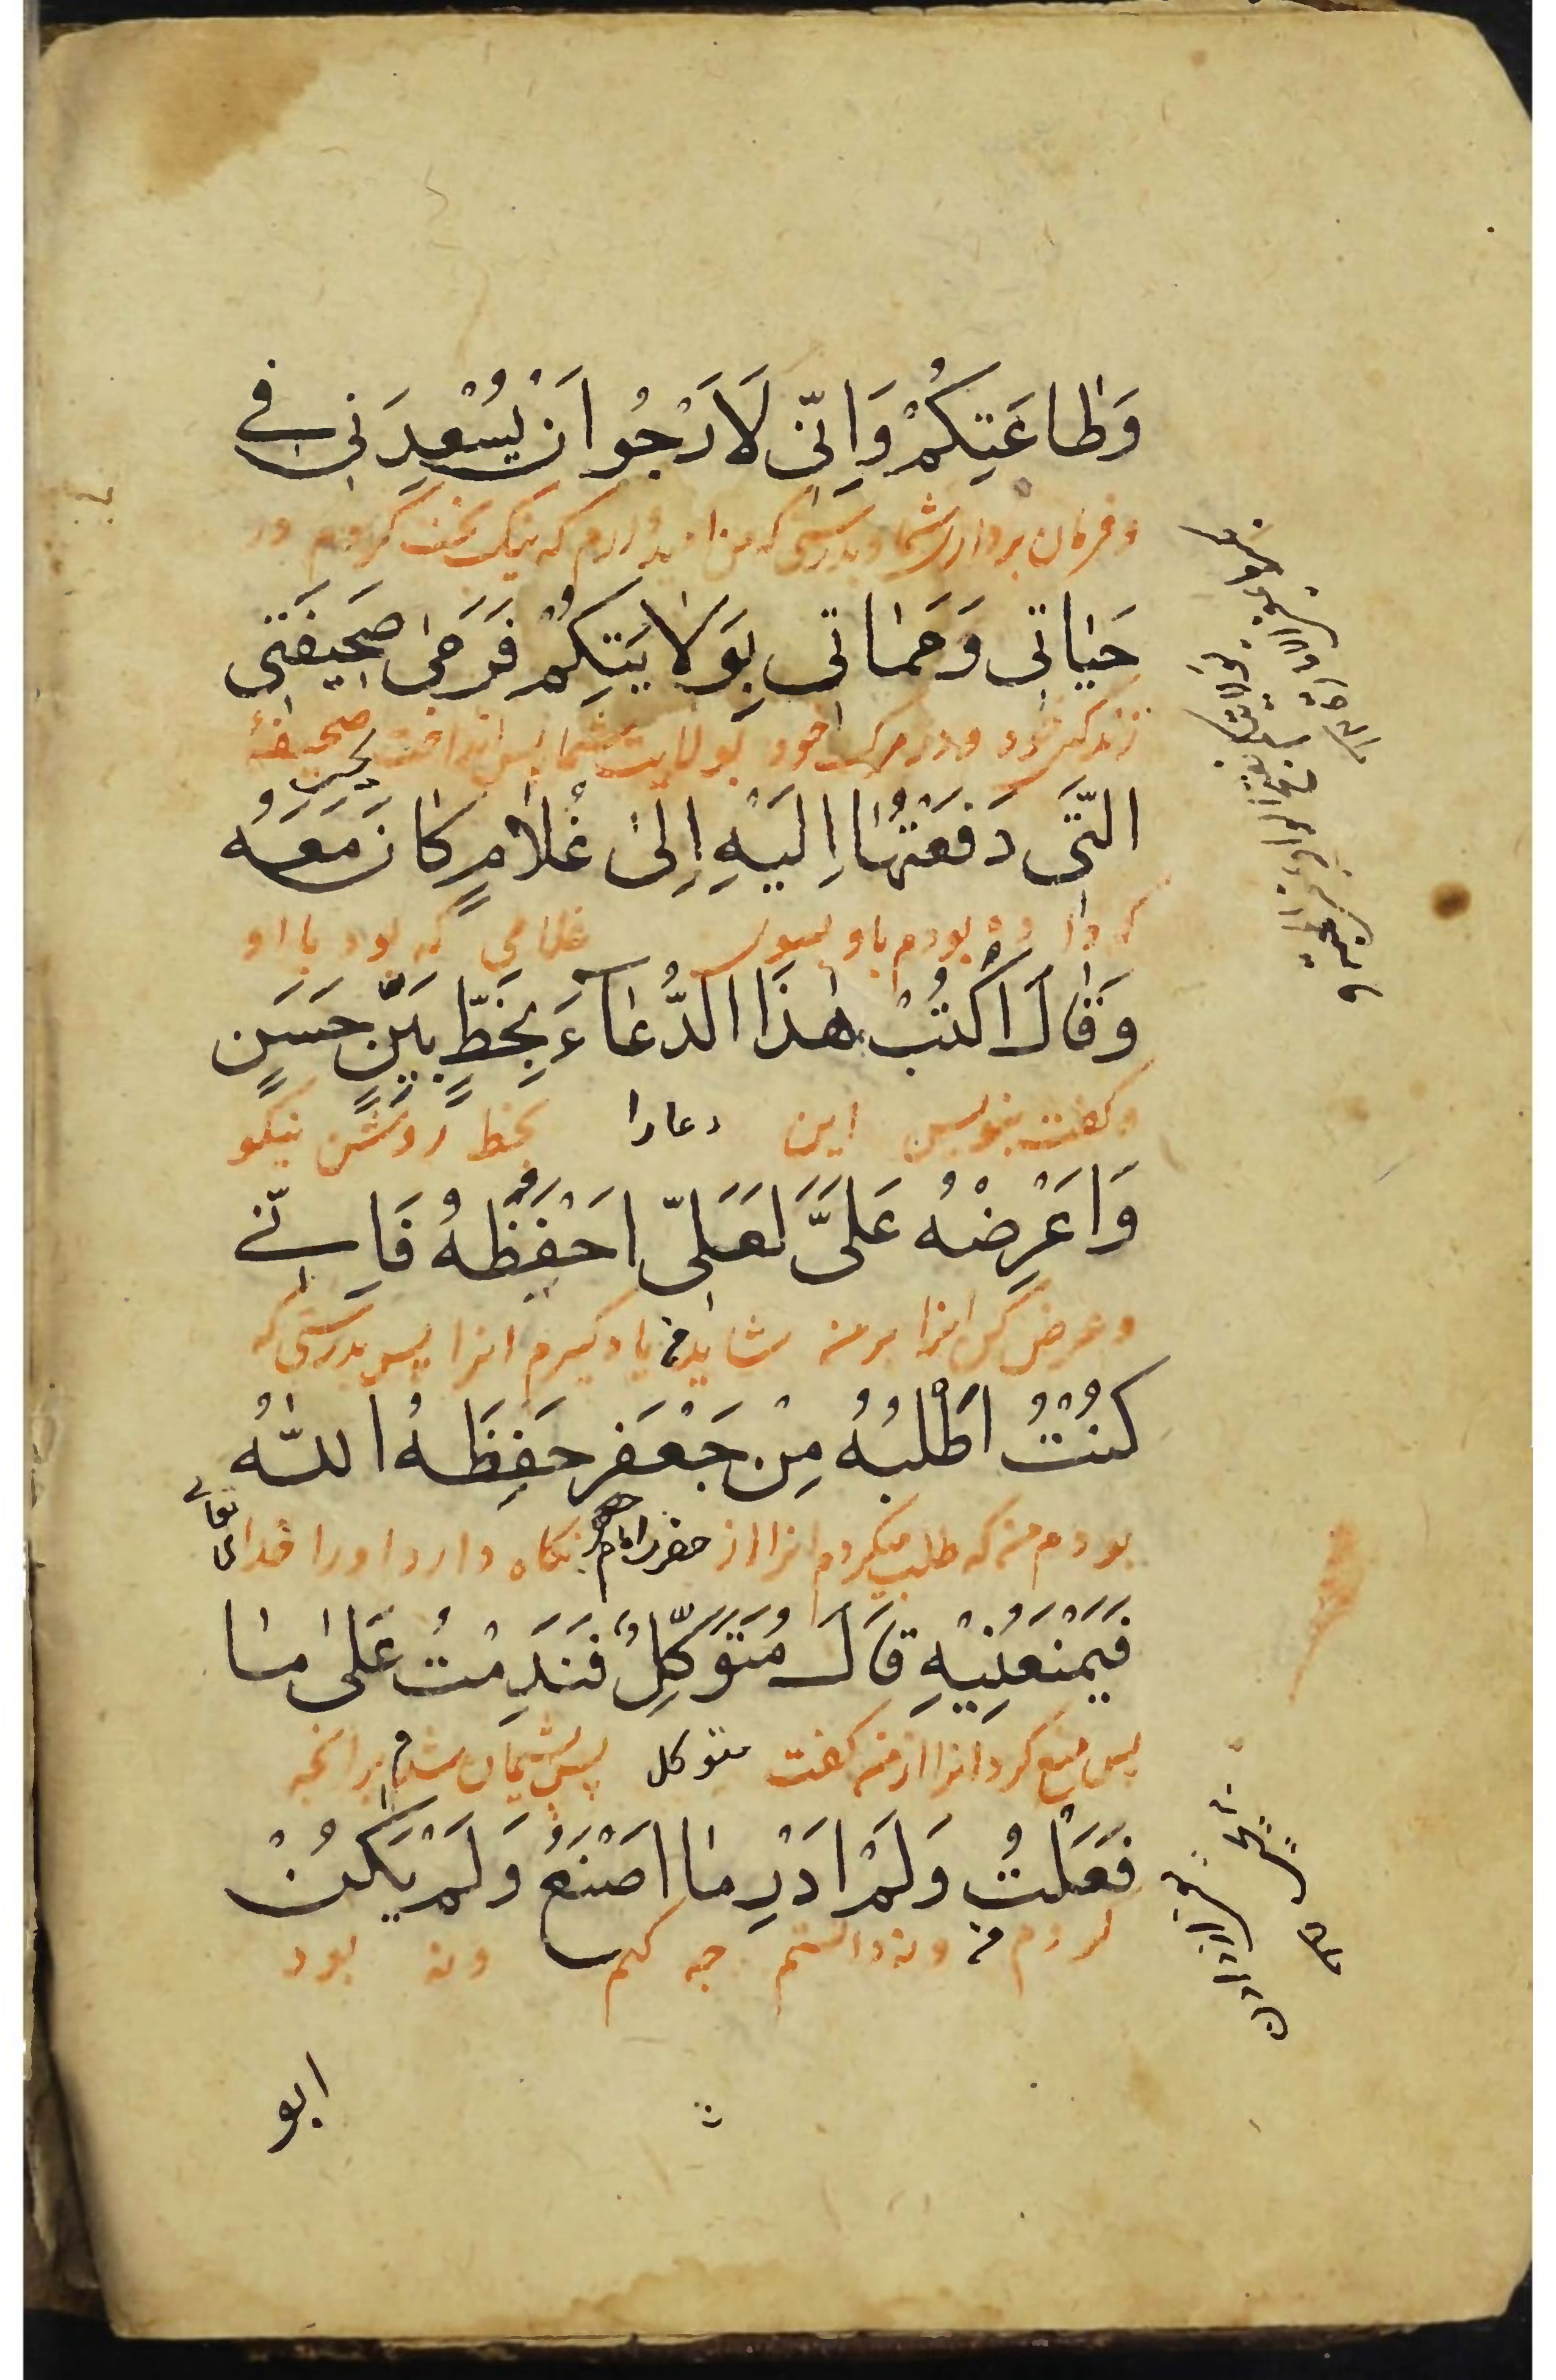 وَطاعَتِكُمْ وَاِنّي لَاَرْجُوا اَنْ يُسْعِدَني في
و فرمان برداری شما و بدرستی که من امید دارم که نیک بخت کردم در
حَيٰاتي وَمَمٰاتي بِوَلايَتِكُمْ فَرَمىٰ صَحيفَتي
زندکی خود و در مرک خود بولایت شما پس انداخت صحیفهٔ
الَّتي دَفَعْتُهٰا اِلَيْهِ اِلىٰ غُلامٍ كانَ مَعَهُ
که داده بودم باو بسوی غلامی که بود با او
وَقالَ اُكْتُبْ هٰذَا الدُّعاءَ بِخَطٍّ بَيِّنٍ حَسَنٍ
و کفت بنویس این دعا را بخط روشن نیکو
وَاعْرِضْهُ عَلَيَّ لَعَلّي اَحْفَظُهُ فَاِنّي
و عرض کن انرا بر من شاید من یاد کیرم انرا پس بدرستی که
كُنْتُ اَطْلُبُهُ مِنْ جَعْفَرٍ حَفِظَهُ اللهُ
بودم من که طلب میکردم انرا از حضرت امام جعفر نکاه دارد او را خدای تعالی
فَيَمْنَعُنيهِ قالَ مُتَوَكِّلٌ فَنَدِمْتُ عَلىٰ مٰا
پس منع کرد انرا از من کفت متوکل پس پشیمان شدم بر انچه
فَعَلْتُ وَلَمْ اَدْرِ مٰا اَصْنَعُ وَلَمْ يَكُنْ
کردم من و نه دانستم چه کنم و نه بود
ابو